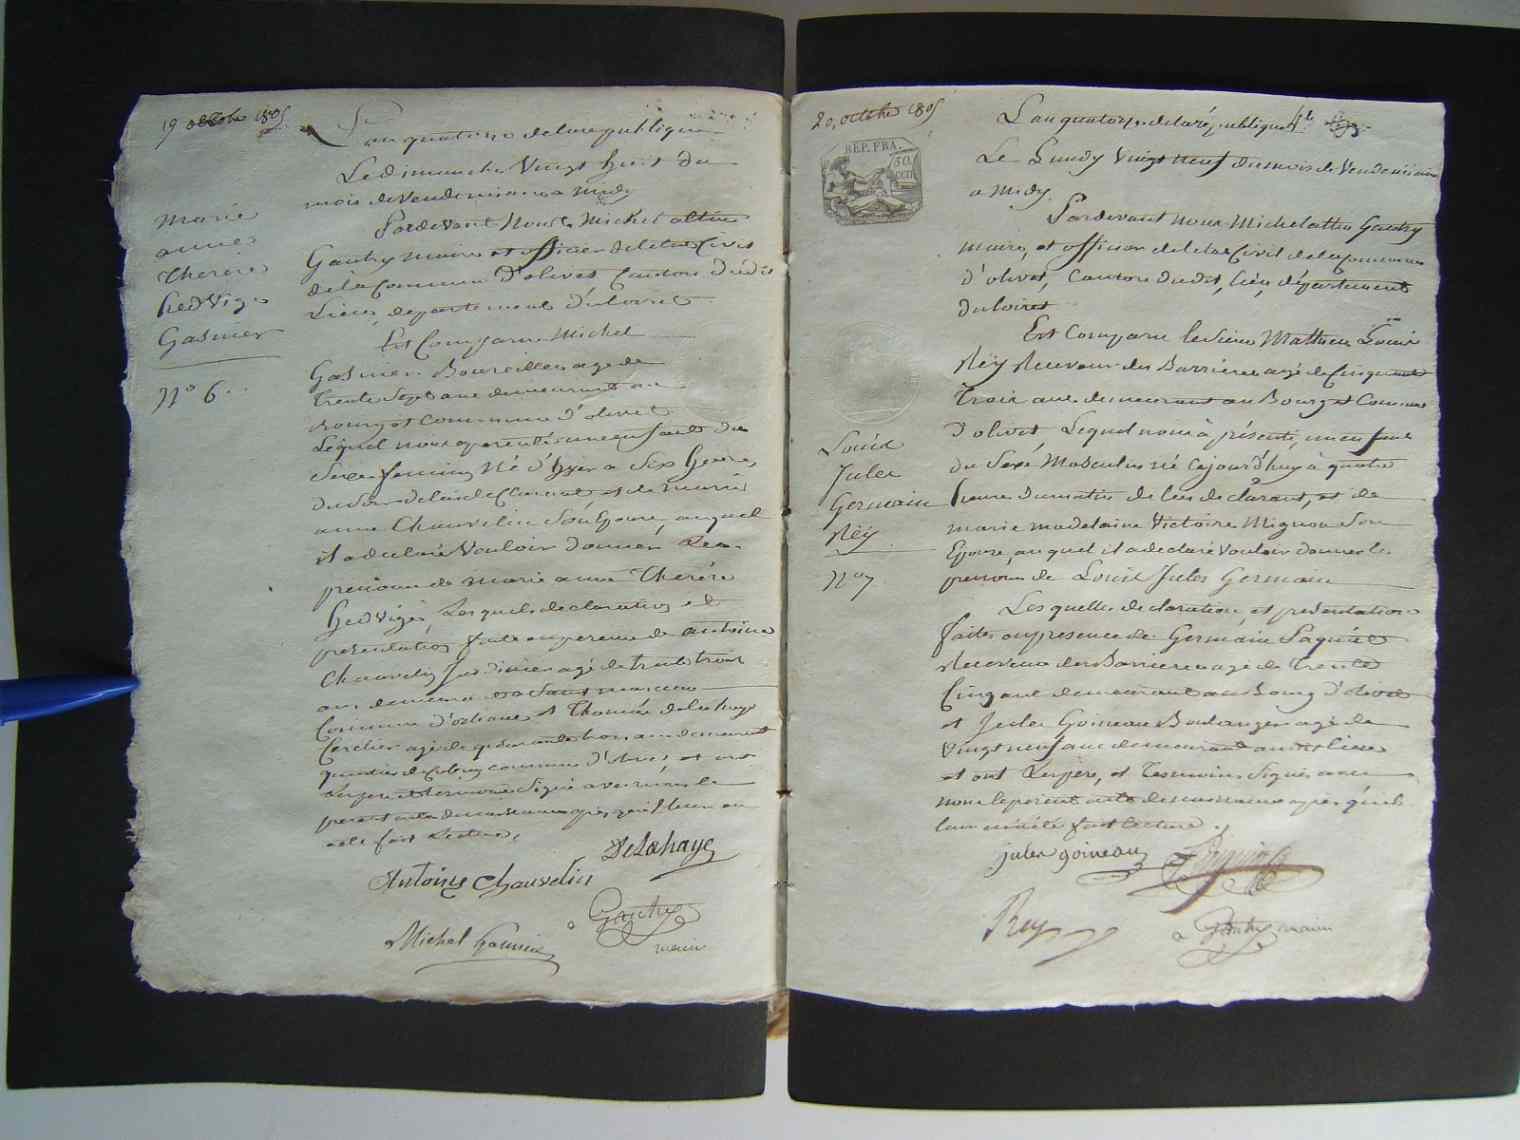 19 octobre 1805
L'an quatorze de la republique
Le dimanche Vingt huit du
mois de Vendemiaire a midy
Pardevant Nous Michel
Gaudry maire et officier de letat Civil
de la Commune D'olivet Canton dudit
Lieu, departement du loiret
Est Comparu Michel
Gasnier age de
Trente Sept ans demeurant au
Bourg et Commune d'olivet
Lequel nous a presenté un enfant du
Sexe feminin Né d'hyer a Six heures
du Soir de lui declarant et de marie
anne Chauvelin Son Epouse, auquel
il a declaré Vouloir donner Les
prenoms de marie anne Therese
hedvige, Lesquels declaration et
presentation faite en presence de antoine
Chauvelin Jardinier agé de trente trois
ans demeurant
Commune d'orleans et Thomas delahaye
Cerclier agé de quarante trois ans demeurant
commune d'olivet, et ont
Le pere et temoins Signé avec nous le
present acte
fait Lecture,
Marie
anne
Therese
hedvige
Gasnier
N° 6.
Delahaye
Antoine Chauvelin
Gaudry
maire
Michel Gasnier
20, octobre 1805
REP. FRA.
50.
CEN
L'an quatorze de la république
Le Lundy Vingt neuf du mois de Vendemiaire
a midy
Pardevant nous Michel Gaudry
maire, et officier de letat Civil de la Commune
d'olivet, Canton dudit, lieu, département
du loiret
Est Comparu le Sieur Mathieu Louis
Réy Receveur des Barrieres agé de Cinquante
Trois ans demeurant au Bourg et Commune
d'olivet Lequel nous à présenté, un enfant
du Sexe Masculin né cejourd'huy à quatre
heures du matin de lui declarant, et de
marie madelaine Victoire Mignon Son
Epouse, auquel il a declaré Vouloir donner les
prenoms de Louis Jules Germain
Lesquelles declaration, et presentation
faites en presence de Germain
Receveur des Barrieres age de Trente
Cinq ans demeurant au Bourg d'olivet
et Jules Goineau Boulanger agé de
Vingt neuf ans demeurant au dit lieu
et ont Le père, et Temoins Signé avec
nous le present acte de naissance apres qu'il
leur en a été fait Lecture.
Louis
Jules
Germain
Réy
N° 7
jules goineau
Rey
Gaudry maire